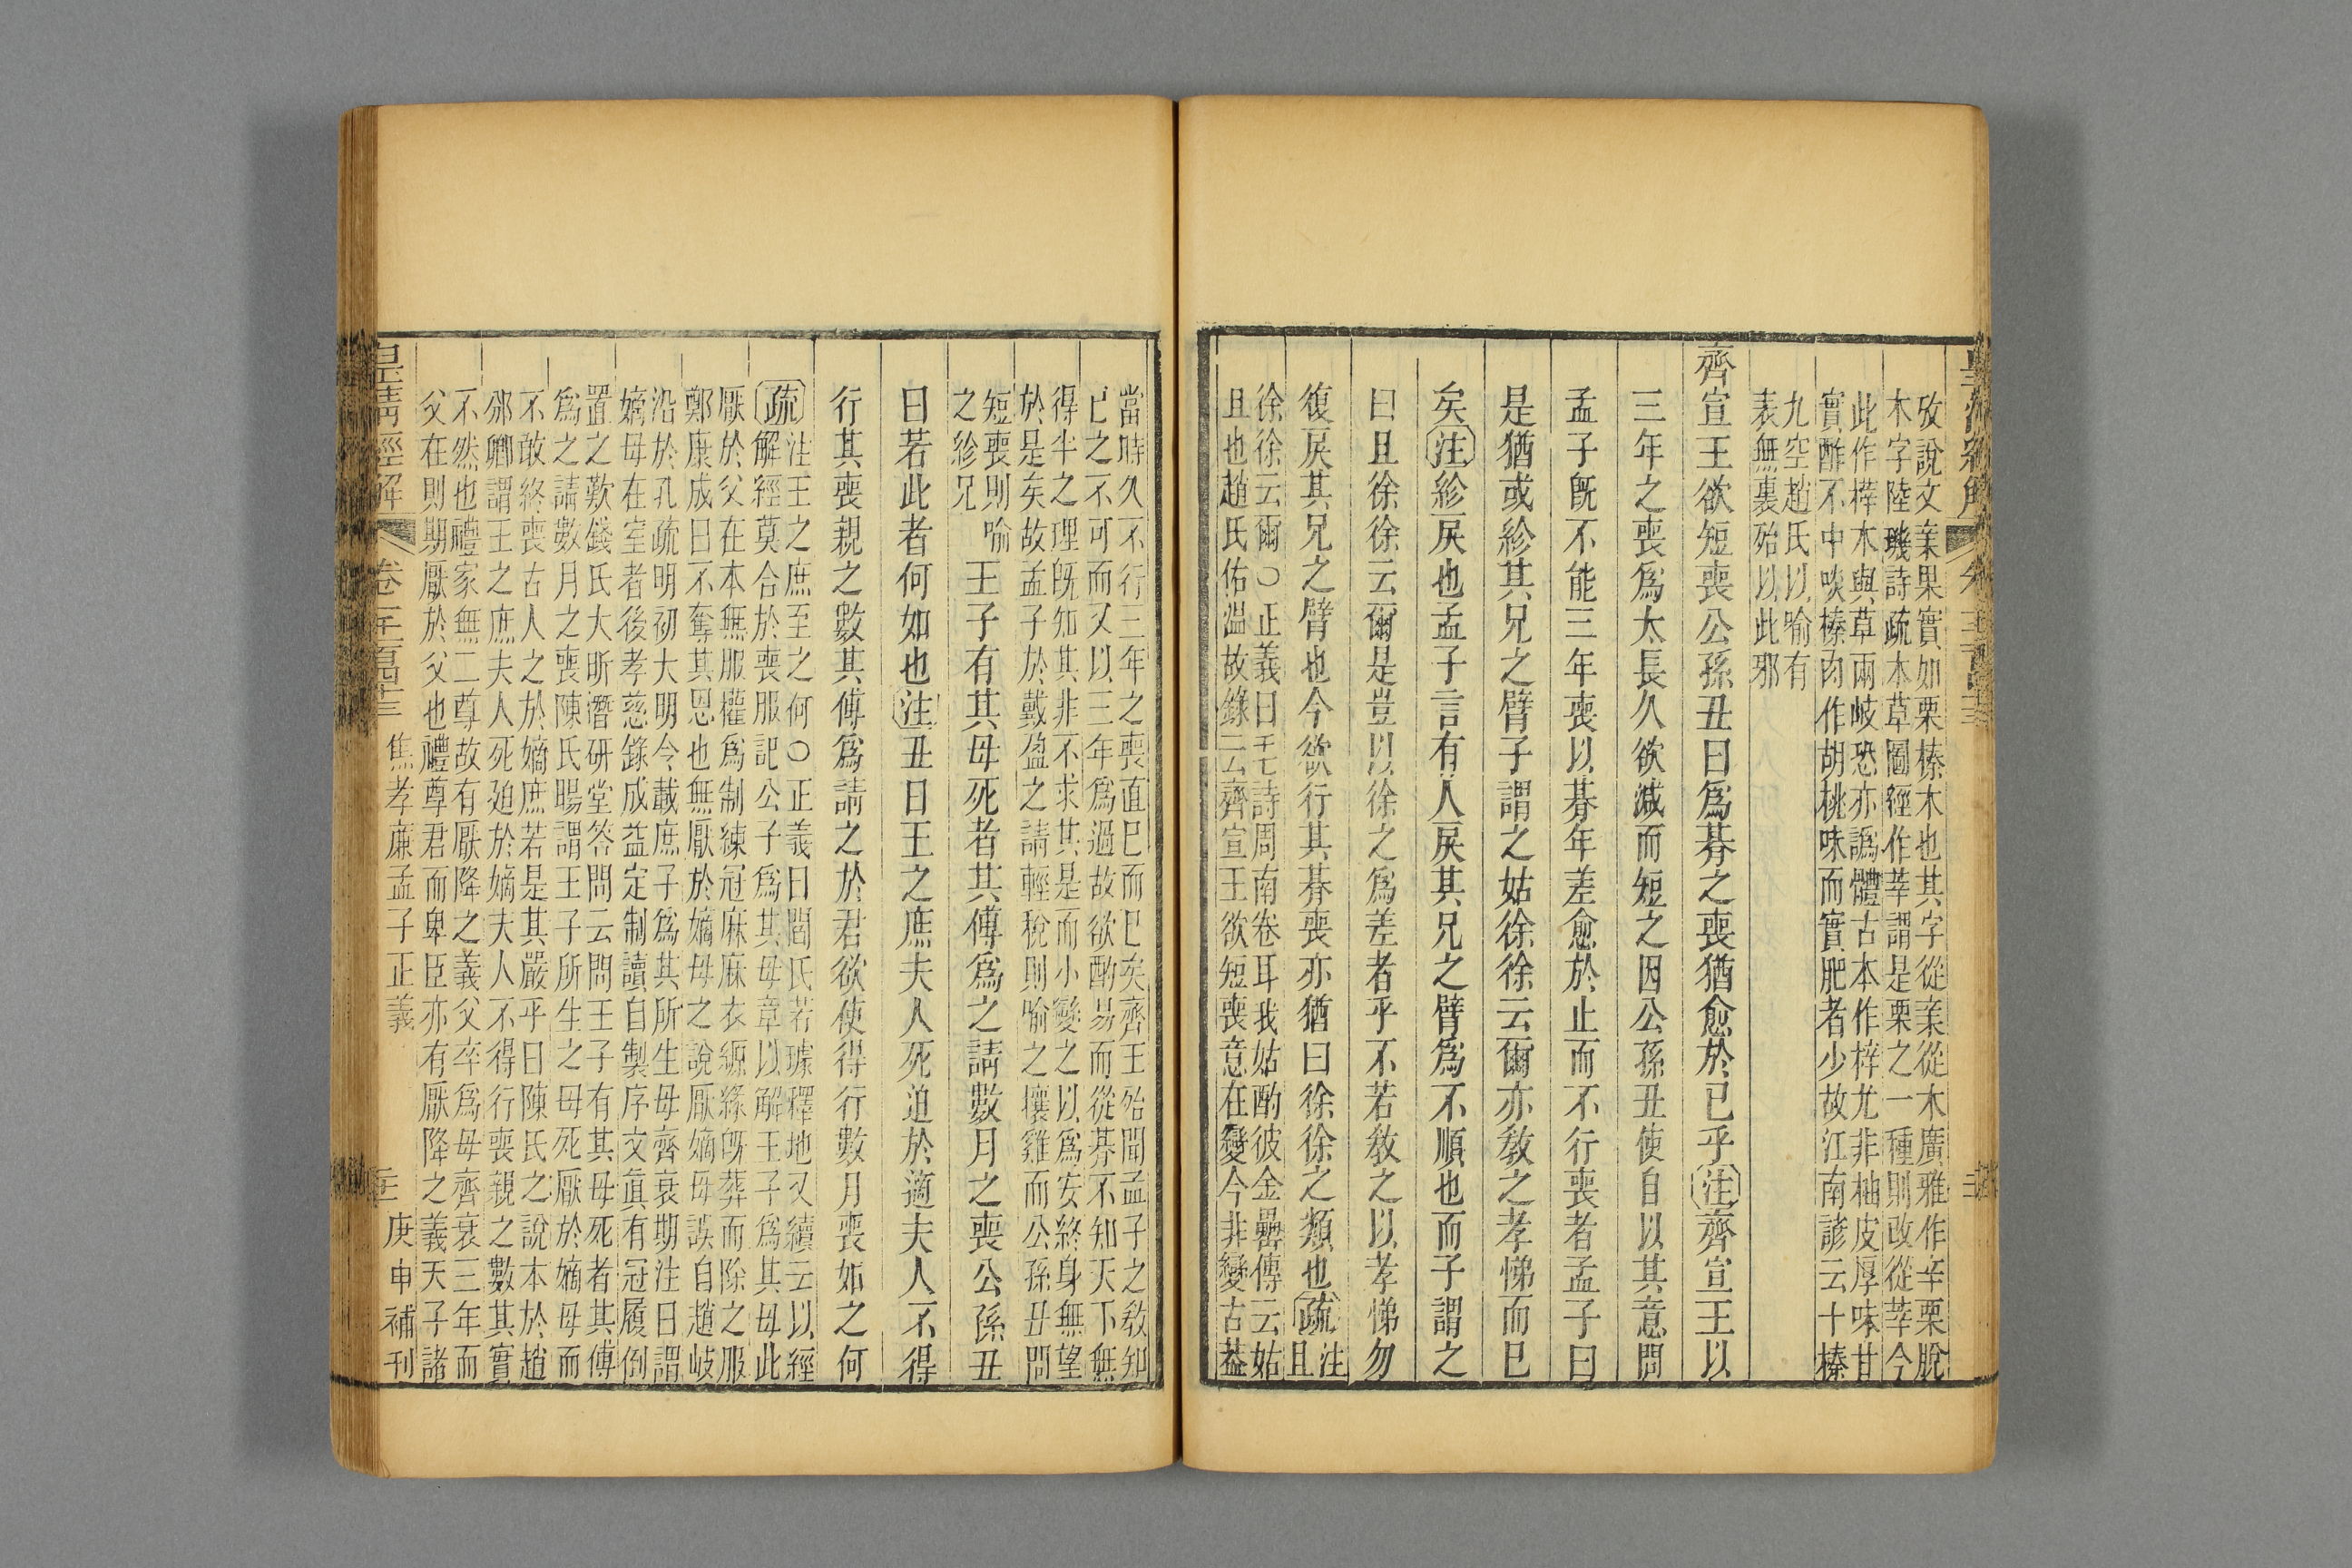 皇清經解
攷說文亲果實如栗榛木也其字從亲從木廣雅作辛栗脫
木字陸璣詩疏本草圖經作莘謂是栗之一種則改從莘今
此作榟木與草兩岐恐亦譌體古本作梓尤非柚皮厚味甘
實酢不中啖榛肉作胡桃味而實肥者少故江南諺云十榛
九空趙氏以喻有
表無裏殆以此邪
齊宣王欲短喪公孫丑曰爲朞之喪猶愈於已乎注齊宣王以
三年之喪爲太長久欲減而短之因公孫丑使自以其意問
孟子旣不能三年喪以朞年差愈於止而不行喪者孟子曰
是猶或紾其兄之臂子謂之姑徐徐云爾亦敎之孝悌而已
矣注紾戾也孟子言有人戾其兄之臂爲不順也而子謂之
曰且徐徐云爾是豈以徐之爲差者乎不若敎之以孝悌勿
復戾其兄之臂也今欲行其朞喪亦猶曰徐徐之類也疏注且
徐徐云爾○正義曰毛詩周南卷耳我姑酌彼金罍傳云姑
且也趙氏佑溫故錄云齊宣王欲短喪意在變今非變古葢
當時久不行三年之喪直已而已矣齊王殆聞孟子之敎知
已之不可而又以三年爲過故欲酌易而從朞不知天下無
得半之理旣知其非不求其是而小變之以爲安終身無望
於是矣故孟子於戴盈之請輕稅則喻之攘雞而公孫丑問
短喪則喻
之紾兄
王子有其母死者其傅爲之請數月之喪公孫丑
曰若此者何如也注丑曰王之庶夫人死迫於適夫人不得
行其喪親之數其傅爲請之於君欲使得行數月喪如之何
疏注王之庶至之何○正義曰閻氏若璩釋地又續云以經
解經莫合於喪服記公子爲其母章以解王子爲其母此
厭於父在本無服權爲制練冠麻麻衣縓緣旣葬而除之服
鄭康成曰不奪其恩也無厭於嫡母之說厭嫡母誤自趙岐
沿於孔疏明初大明令載庶子爲其所生母齊衰期注曰謂
嫡母在室者後孝慈錄成益定制讀自製序文眞有冠履倒
置之歎錢氏大昕潛硏堂答問云問王子有其母死者其傅
爲之請數月之喪陳氏暘謂王子所生之母死厭於嫡母而
不敢終喪古人之於嫡庶若是其嚴乎曰陳氏之說本於趙
邠卿謂王之庶夫人死廹於嫡夫人不得行喪親之數其實
不然也禮家無二尊故有厭降之義父卒爲母齊衰三年而
父在則期厭於父也禮尊君而卑臣亦有厭降之義天子諸
皇清經解
焦孝廉孟子正義
庚申補刊